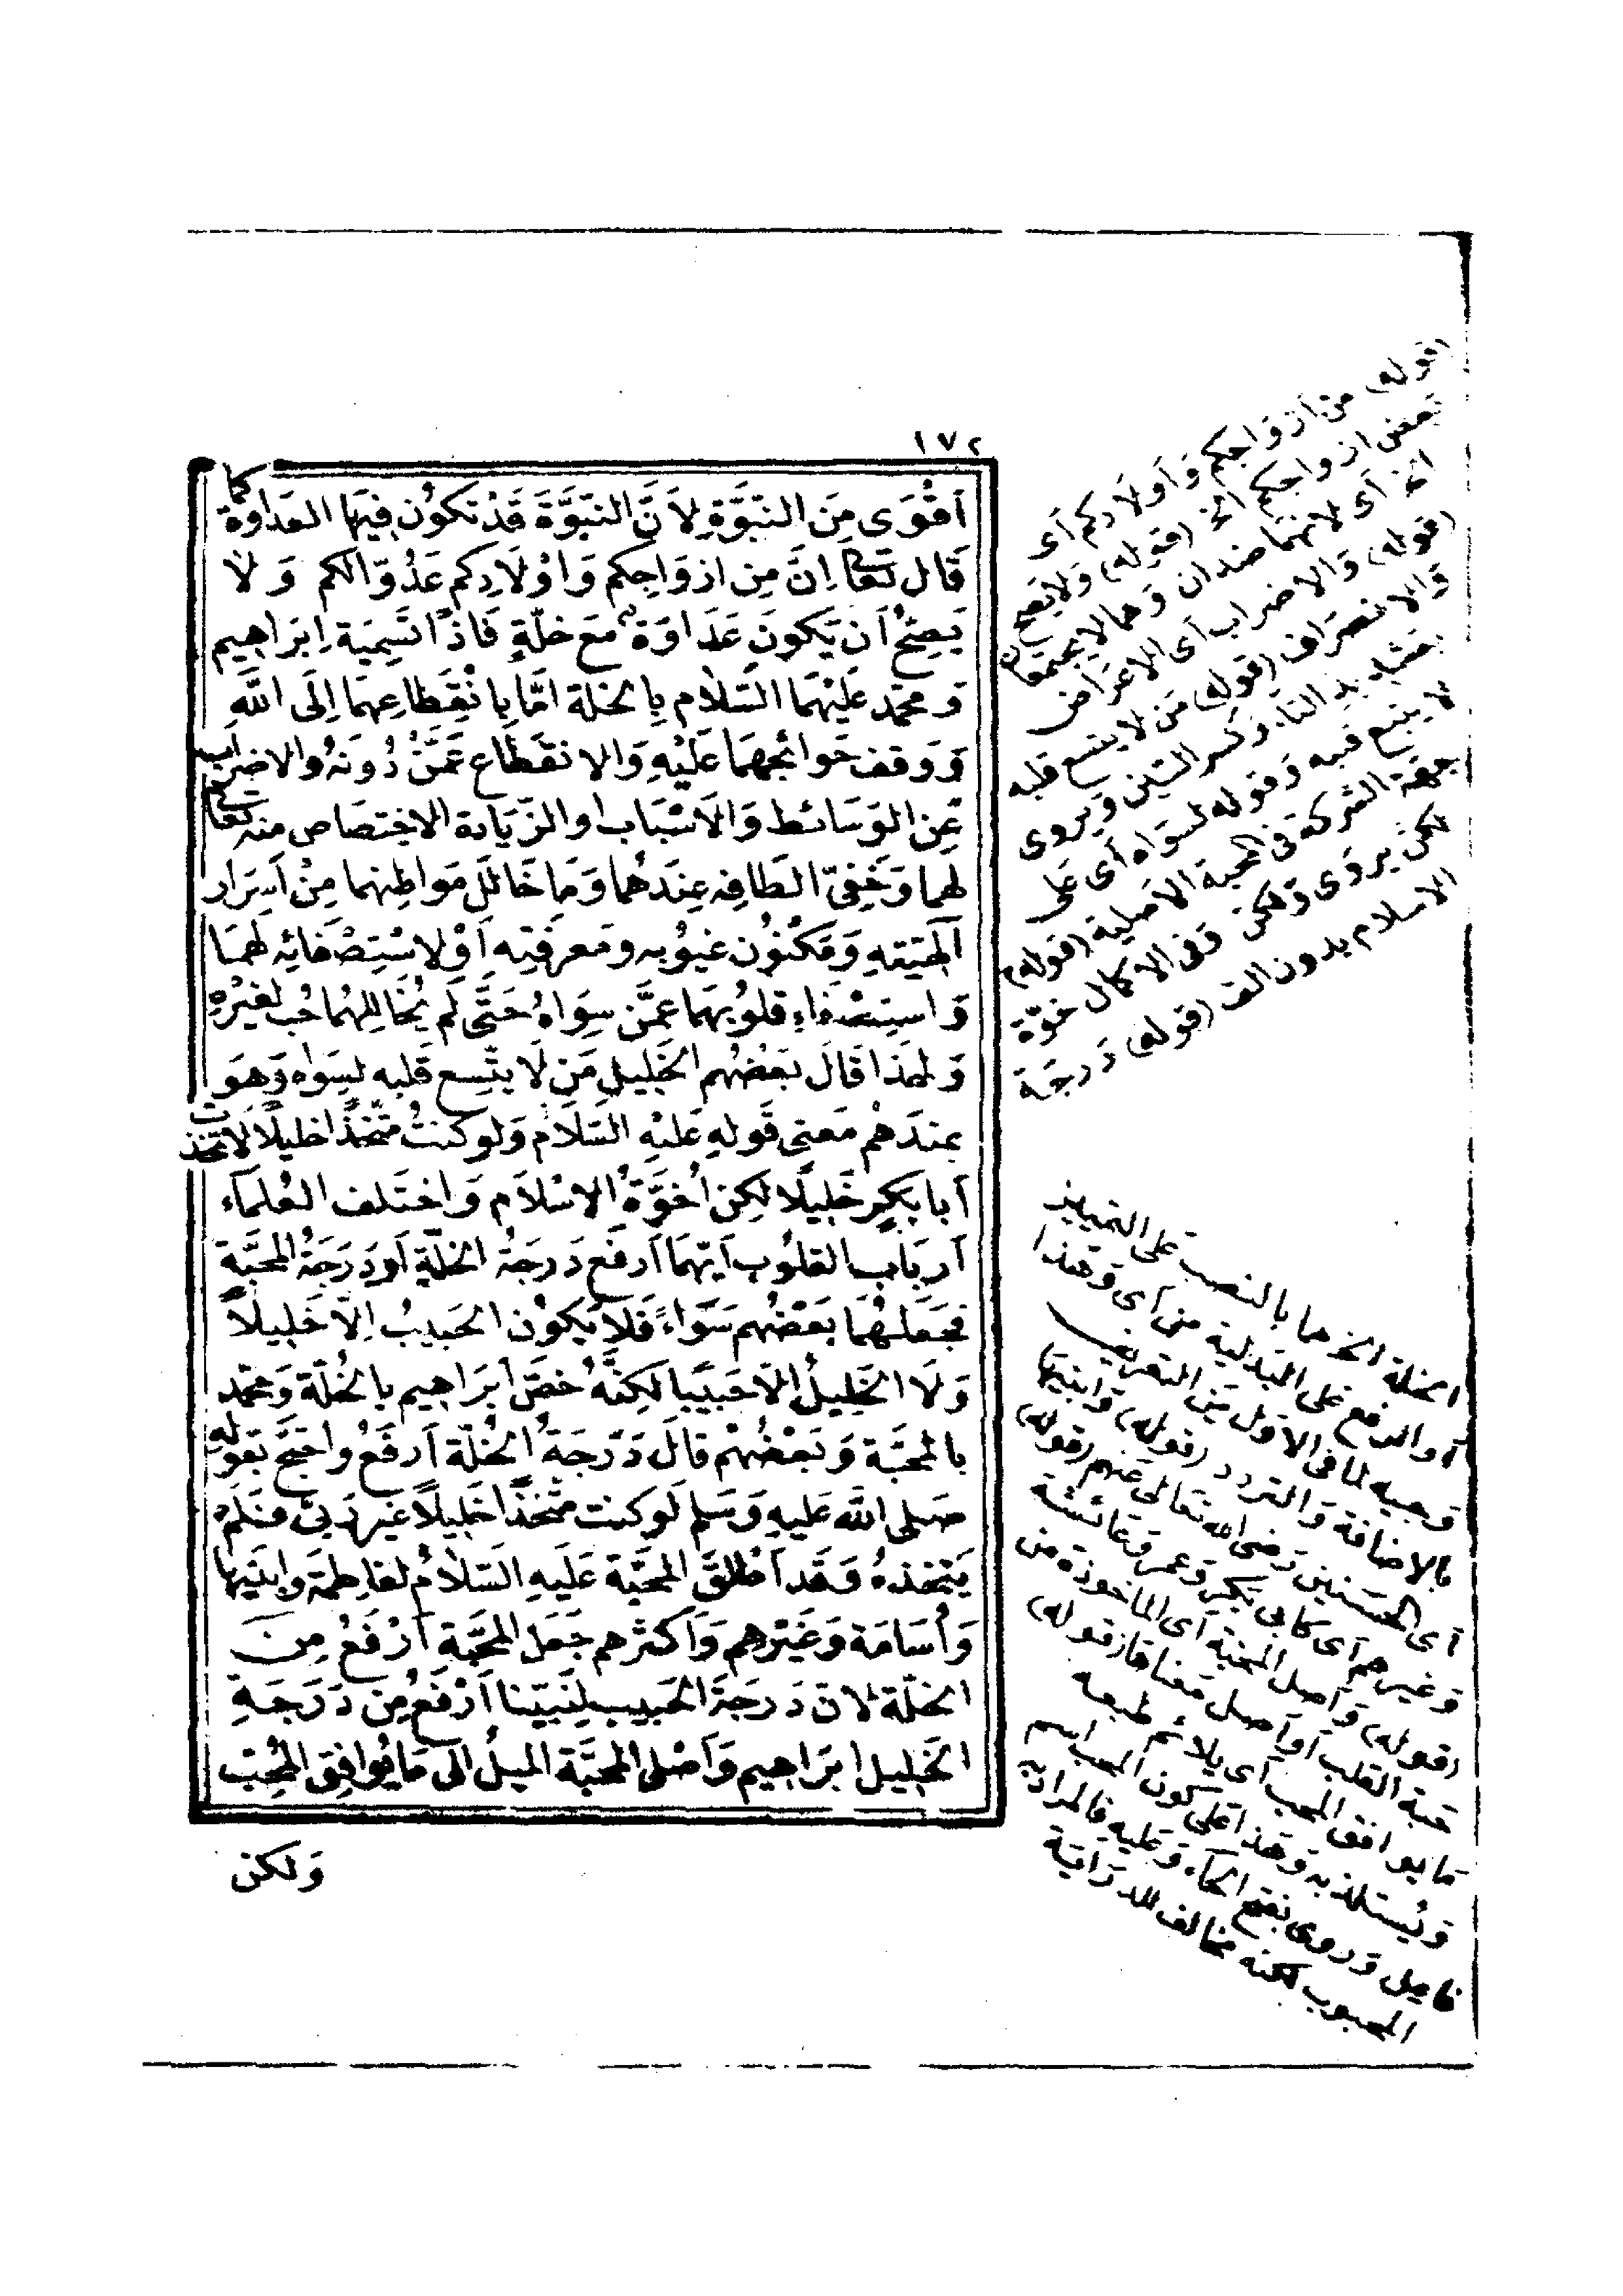 ١٧٢
أَقْوَى مِنَ النبُوَّةِ لِأَنَّ النبُوَّةَ قَدْ تَكُونُ فِيهَا العَدَاوَة كما
قَال تَعَالَى إنَّ مِن ازوَاجِكم وَاوْلَادِكم عَدُوّا لكم وَلَا
يَصِحُّ أن يَكونَ عَدَاوَة مَعَ خلّةٍ فَاذًا تَسْمِيَة اِبرَاهِيم
وَمحمّد عَلَيْهمَا السَّلَام بِالخلة امَّا بِانْقِطَاعِهمَا اِلَى اللَّهِ
وَوَقف حَوائجهمَا عَلَيْهِ وَالانقطَاع عَمَّنْ دُونَهُ والاضراب
عَنِ الوَسَائط وَالأسْبَاب او الزّيَادة الاختِصَاص منه تعالى
لهما وَخَفِىّ الطَافِه عِندَهُما وَمَا خَالَلَ مَوَاطِنهما مِنْ أسرَار
اُلهِيَّتهِ وَمَكْنُون غيُوْبه وَمَعرفتِه أوْ لاسْتِصْفائِه لَهمَا
وَاستِصْفاءِ قلوُبهمَا عمَّن سِوَاهُ حَتَّى لَم يُخَالِلْهُمَا حُب لغَيْرِهِ
وَلهذَا قَالَ بَعضُهُم الخَلِيلِ مَن لَا يتَّسِع قَلبه لِسوَاه وَهوَ
عِندَهُم مَعنى قَولهِ عَليْه السَّلَام وَلو كنتُ متّخِذًا خليلًا لاتّخذت
أبا بَكرٍ خَلِيلًا لكِن اُخوَّةُ الاسْلَام وَاختَلف العُلمَاء
أربَاب القلُوب أيّهمَا أرفَع دَرجَةُ الخلّةِ أو دَرَجَةُ المحَبَّة
فجَعَلهُمَا بَعْضُهُم سَوَاءً فَلَا يَكوُن الحَبيبُ اِلَّا خَلِيلًا
وَلَا الخَلِيلُ اِلّا حَبِيبًا لَكِنَّهُ خصَّ ابرَاهِيم بِالخُلّة وَمحمّد
بالمحَبَّة وَبَعْضُهُمْ قالَ دَرَجَةُ الخُلَّة أرفَعُ واحتجَّ بقولِه
صَلى اللَّه عَليهِ وَسَلم لَو كنت متّخذًا خَلِيلًا غير رَبىّ فَلَمْ
يَتَّخِذهُ وَقَد أطْلقَ المحَبَّة عَلَيهِ السَّلَامُ لفاطِمَة وابنَيْها
وَأُسَامَة وَغَيْرِهِم وَأكثَرهم جَعَل المحَبَّة أرْفَعُ مِنَ
الخلّة لانّ دَرجَةَ الحَبِيب لِنَبيّنا أرْفَعُ مِن دَرَجَةِ
الخَلِيل ابرَاهِيم وَأصْلُ المحَبَّة الميلُ اِلَى مَا يُوَافِق المُحِبّ
وَلكن
(قوله) من ازواجكم وَأولَادِكم أى
بَعض ازواجكم الخ (قوله) وَلا يَصح ان
الخ أى لانهما ضدان وَهما لا يجتمعَان
(قوله) وَالاضراب أى الاعرَاض
وَالانصرَاف (قوله) مَن لا يتسع قلبه
بتشديد التاء وكسر السّين وَيروى
لا يتسع فيه وقوله لسوَاه أى عَلى
جهَة الشركة فى المحبة الاصلية (قوله)
لكن يروَى وَلكن وَفى الاكمال خوّة
الاسلام بدون الف (قوله) دَرجَة
الخلة الخ هما بالنصب على التمييز
أو الرفع على البَدلية من أى وَهذا
وَجيه لما فى الاول مَن التعريف
بالاضافة وَالتردد (قوله) وَابنَيها
أى الحسَنين رَضى الله تعَالى عَنهم (قوله)
وغيرهم أى كابى بكر وَعمر وَعَائشة
(قوله) وَاصل المحبة أى الماخوذة من
حَبة القلب أو أصل مَعناها (قوله)
مَا يوافق المحب أى يلائم طبعه
وَيُستلذ به وَهذا عَلى كون المحب اسم
فاعِل وَروى بفتح الحَاء وَعَليه فالمراد به
المحبوب لكنه مخالف للدرَاية